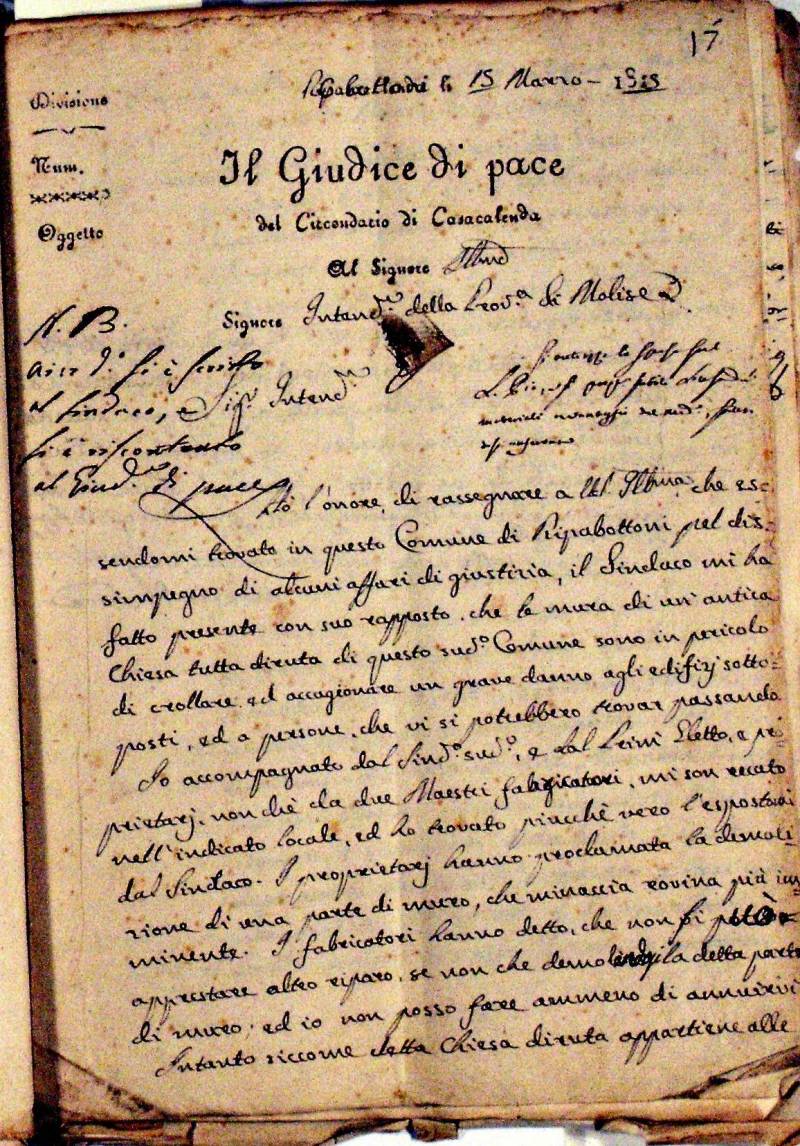 17
Ripabottoni li 15 Marzo - 1813
Divisione
Num.
Oggetto
Il Giudice di pace
del Circondario di Casacalenda
Al Signore Illmo
Signore Intend.e della Prov.a di Molise
N. B.
si è scritto
al Sindaco, e Sig.r Intend.e
si è riscontrato
al Giud.e di pace
Hò l'onore, di rassegnare a V.S. Illma, che es=
sendomi trovato in questo Comune di Ripabottoni pel dis=
simpegno di alcuni affari di giustizia, il Sindaco mi ha
fatto presente con suo rapporto, che le mura di un'antica
Chiesa tutta diruta di questo sud.o Comune sono in pericolo
di crollare, ed accagionare un grave danno agli edifizj sotto=
posti, ed a persone, che vi si potrebbero trovar passando
Io accompagnato dal Sind.o sud.o, e dal Primo Eletto, e pro=
prietarj, non chè da due Maestri fabricatori, mi son recato
nell'indicato locale, ed ho trovato piucchè vero l'espostomi
dal Sindaco. I proprietarj hanno proclamata la demoli=
zione di una parte di muro, che minaccia rovina più im=
minente. I fabricatori hanno detto, che non si può
apprestare altro riparo, se non che demolendosi la detta parte
di muro; ed io non posso fare ammeno di annuirvi
Intanto siccome detta Chiesa diruta appartiene alle